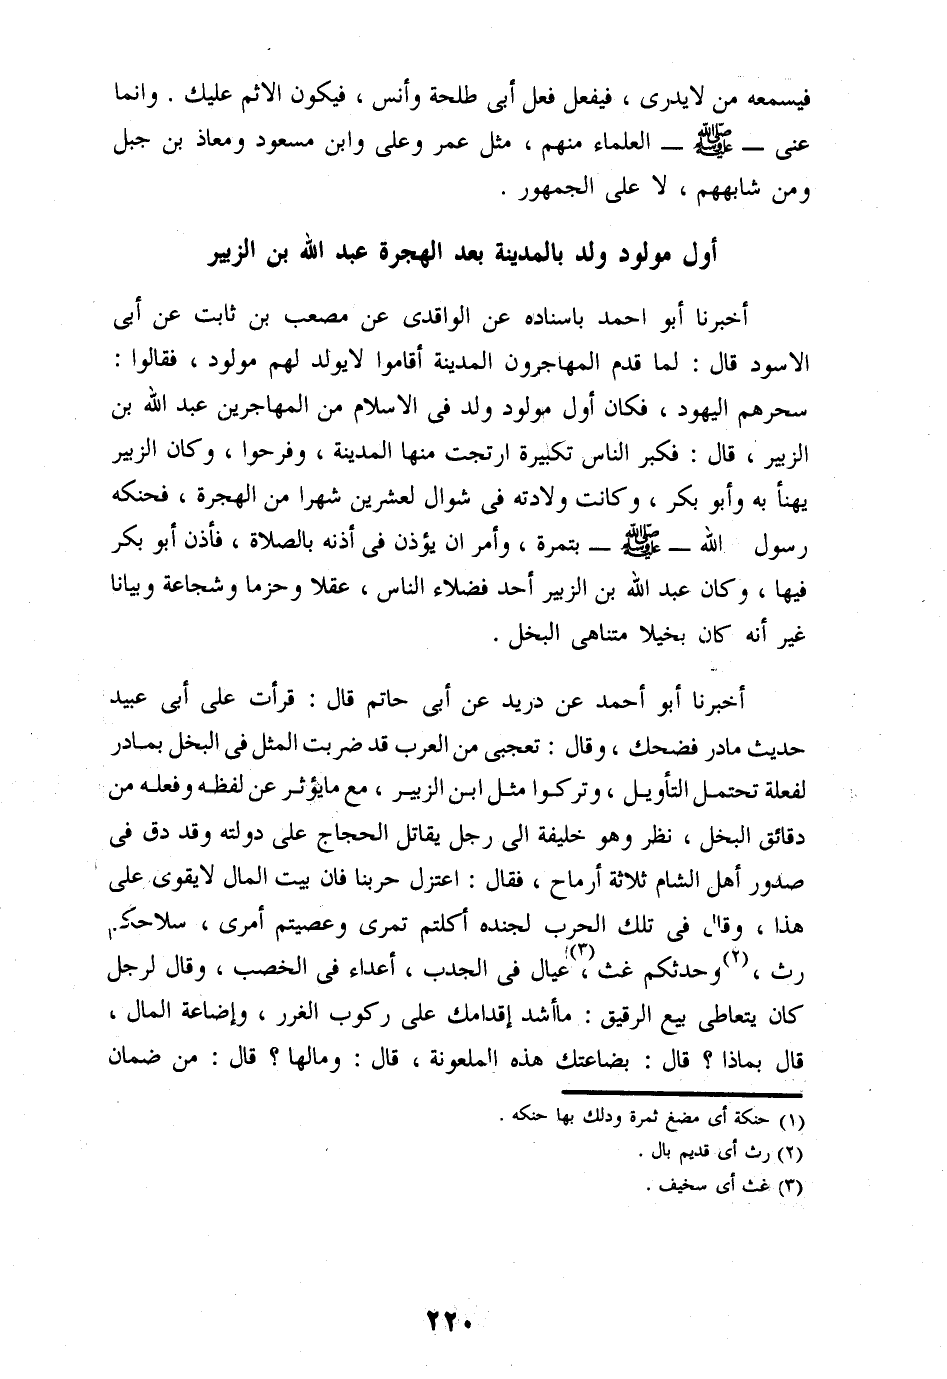 فيسمعه من لايدرى ، فيفعل فعل أبى طلحة وأنس ، فيكون الاثم عليك . وانما
عنى ــ ﷺ ــ العلماء منهم ، مثل عمر وعلى وابن مسعود ومعاذ بن جبل
ومن شابههم ، لا على الجمهور .
أول مولود ولد بالمدينة بعد الهجرة عبد الله بن الزبير
أخبرنا أبو احمد باسناده عن الواقدى عن مصعب بن ثابت عن أبى
الاسود قال : لما قدم المهاجرون المدينة أقاموا لايولد لهم مولود ، فقالوا :
سحرهم اليهود ، فكان أول مولود ولد فى الاسلام من المهاجرين عبد الله بن
الزبير ، قال : فكبر الناس تكبيرة ارتجت منها المدينة ، وفرحوا ، وكان الزبير
يهنأ به وأبو بكر ، وكانت ولادته فى شوال لعشرين شهرا من الهجرة ، فحنكه
رسول الله ــ ﷺ ــ بتمرة ، وأمر ان يؤذن فى أذنه بالصلاة ، فأذن أبو بكر
فيها ، وكان عبد الله بن الزبير أحد فضلاء الناس ، عقلا وحزما وشجاعة وبيانا
غير أنه كان بخيلا متناهى البخل .
أخبرنا أبو أحمد عن دريد عن أبى حاتم قال : قرأت على أبى عبيد
حديث مادر فضحك ، وقال : تعجبى من العرب قد ضربت المثل فى البخل بمادر
لفعلة تحتمل التأويل ، وتركوا مثل ابن الزبير ، مع مايؤثر عن لفظه وفعله من
دقائق البخل ، نظر وهو خليفة الى رجل يقاتل الحجاج على دولته وقد دق فى
صدور أهل الشام ثلاثة أرماح ، فقال : اعتزل حربنا فان بيت المال لايقوى على
هذا ، وقال فى تلك الحرب لجنده أكلتم تمرى وعصيتم أمرى ، سلاحكم
رث ، (٢) وحدثكم غث ، (٣) عيال فى الجدب ، أعداء فى الخصب ، وقال لرجل
كان يتعاطى بيع الرقيق : ماأشد إقدامك على ركوب الغرر ، وإضاعة المال ،
قال بماذا ؟ قال : بضاعتك هذه الملعونة ، قال : ومالها ؟ قال : من ضمان
(١) حنكة أى مضغ ثمرة ودلك بها حنكه .
(٢) رث أى قديم بال .
(٣) غث أى سخيف .
٢٢٠